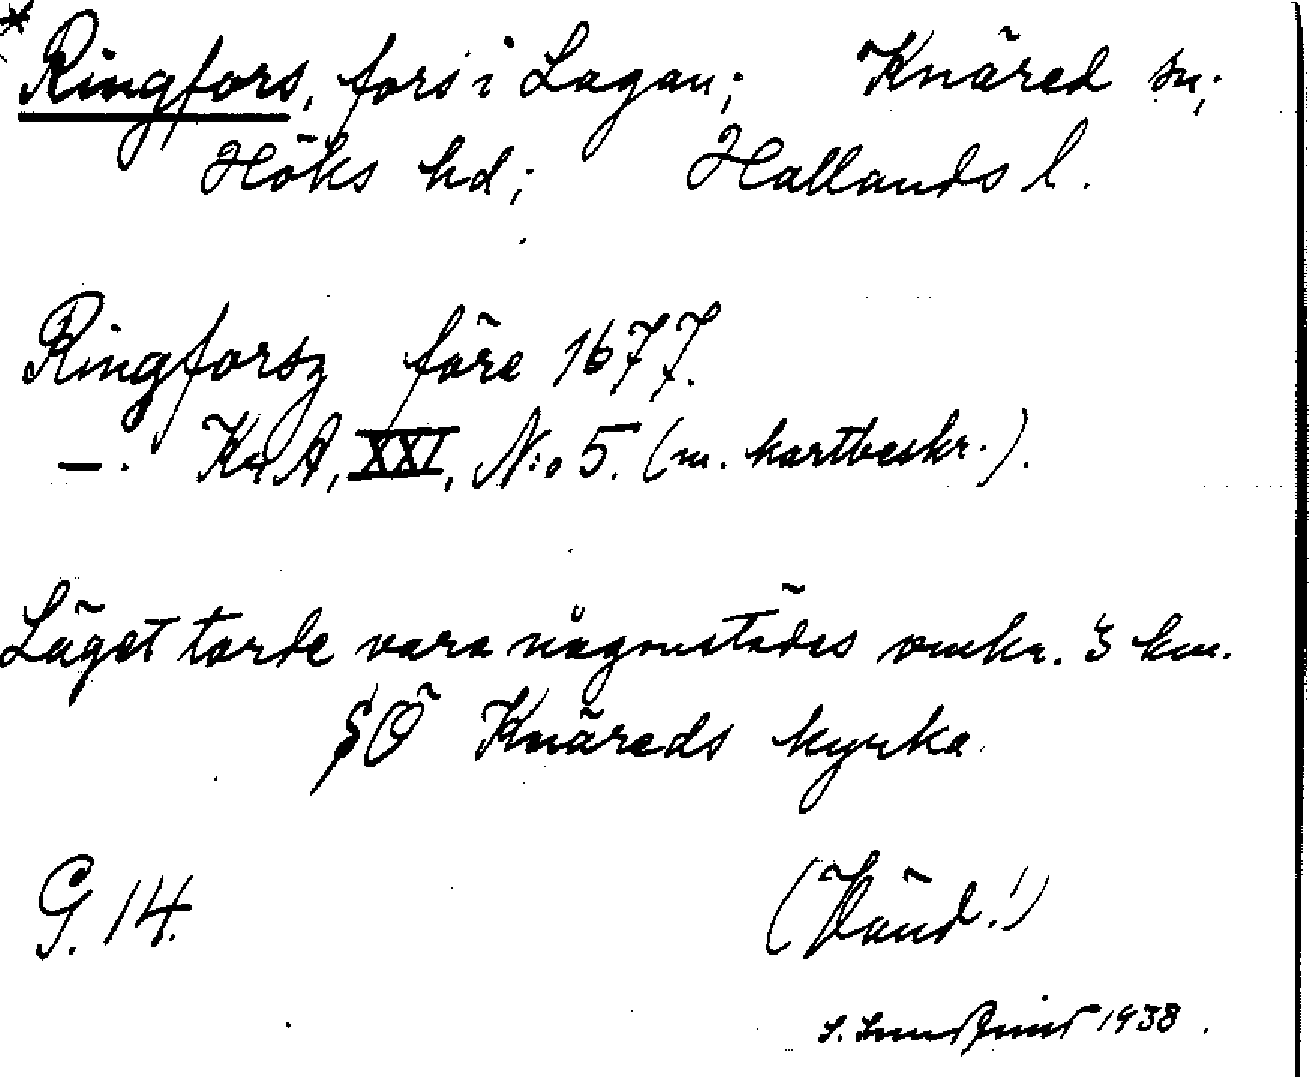 * Ringfors, fors i Lagan; Knäred sn;
Höks hd; Hallands l.
Ringforsz före 1677.
—. KrA, XXI, N:o 5. (m. kartbeskr.).
Läget torde vara någonstädes omkr. 3 km.
SÖ Knäreds kyrka
G. 14.
(Vänd!)
S. 1938.